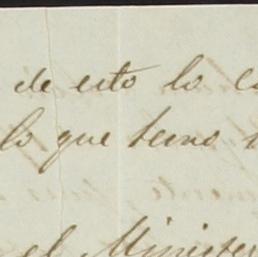 de esto lo c
lo que temo
el Minister